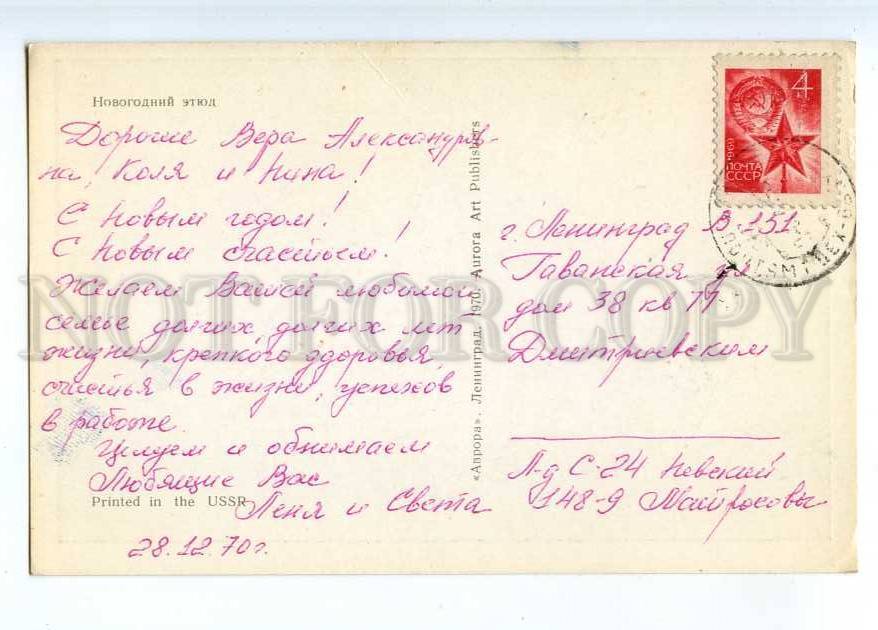 Новогодний этюд
Дорогие Вера Александров-
на, Коля и Нина!
С Новым годом!
С Новым счастьем!
Желаем Вашей любимой
семье долгих долгих лет
жизни, крепкого здоровья,
счастья в жизни, успехов
в работе.
Целуем и обнимаем
Любящие Вас
Леня и Света
28.12.70г.
Printed in the USSR
«Аврора». Ленинград. 1970. Aurora Art Publishers
4
1969
ПОЧТА
СССР
г. Ленинград В-151
Гаванская ул
дом 38 кв 77
Дмитриевским
Л-д С-24 Невский
148-9 Майросовы
NOT FOR COPY